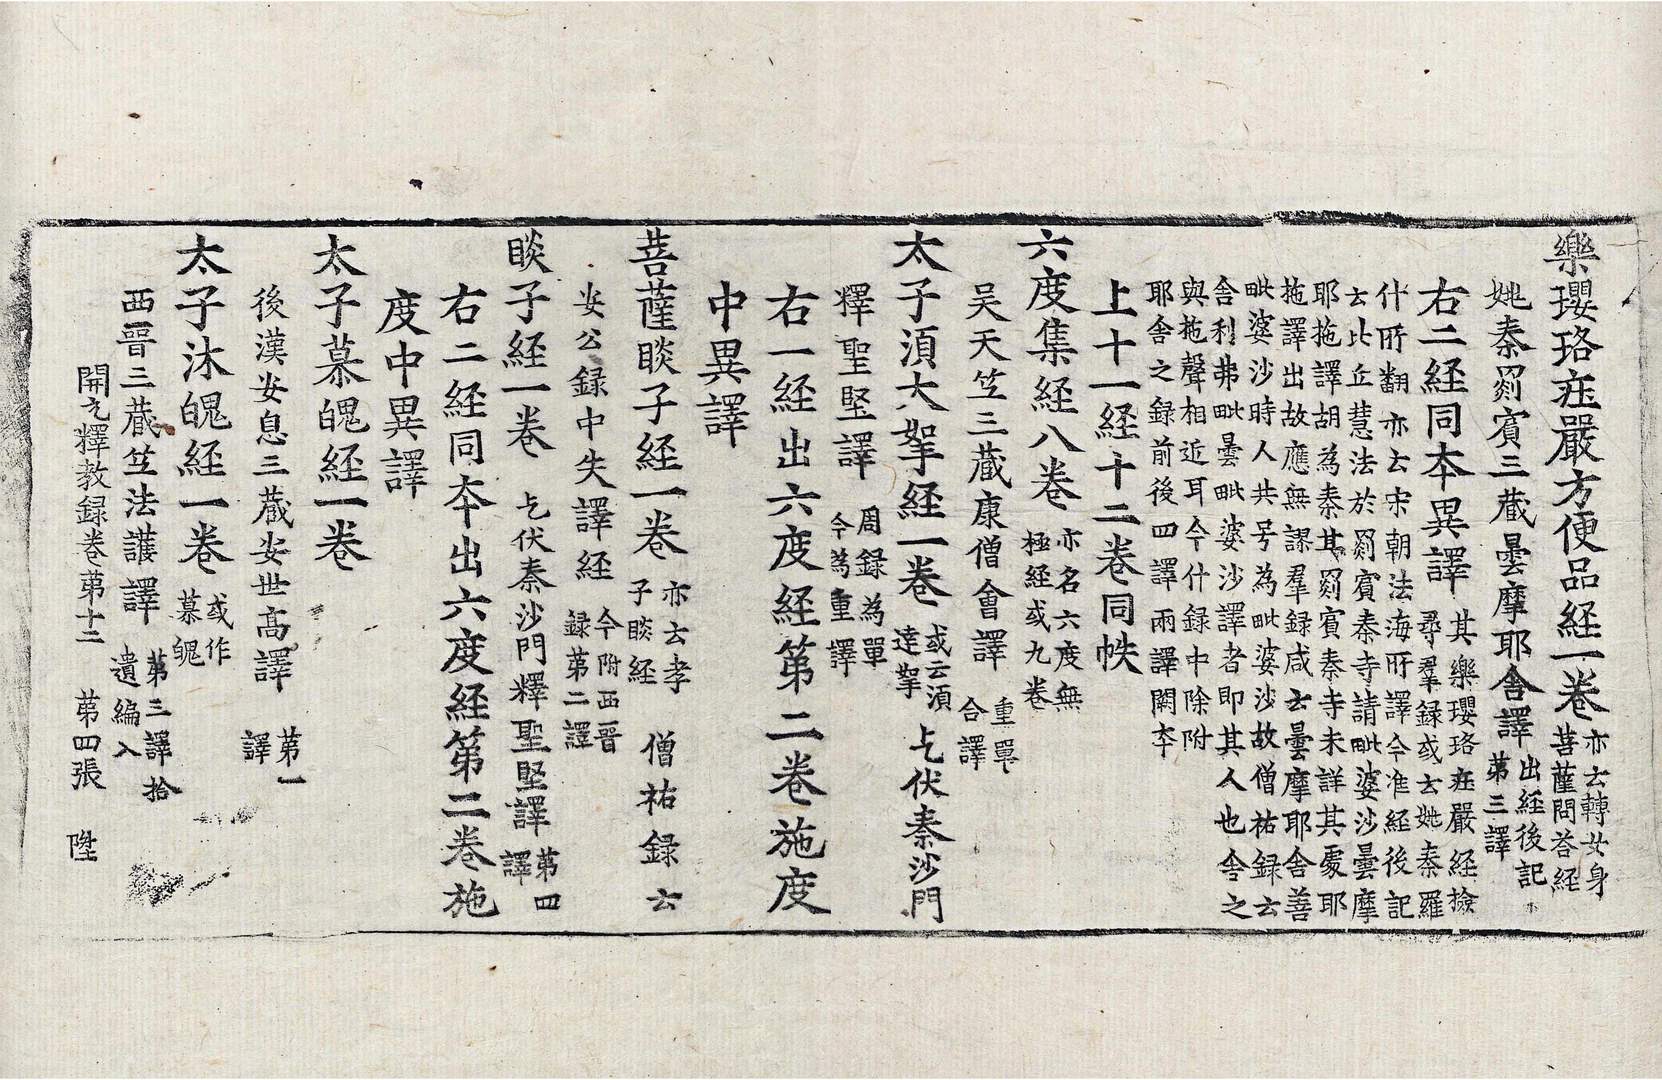 樂瓔珞莊嚴方便品経一卷
亦云轉女身
菩薩問荅経
姚秦罽賓三藏曇摩耶舍譯
出経後記
第三譯
右二経同本異譯
其樂瓔珞莊嚴経撿
尋羣録或云姚秦羅
什所翻亦云宋朝法海所譯今准経後記
云比丘慧法於罽賓秦寺請毗婆沙曇摩
耶拖譯胡為秦其罽賓秦寺未詳其處耶
拖譯出故應無謬羣録咸云曇摩耶舍善
毗婆沙時人共号為毗婆沙故僧祐録云
舍利弗毗曇毗婆沙譯者即其人也舍之
與拖聲相近耳今什録中除附
耶舍之録前後四譯兩譯闕本
上十一経十二卷同帙
六度集経八卷
亦名六度無
極経或九卷
吴天竺三藏康僧會譯
重單
合譯
太子湏大拏経一卷
或云湏
達拏
乞伏秦沙門
釋聖堅譯
周録為單
今為重譯
右一経出六度経第二卷施度
中異譯
菩薩睒子経一卷
亦云孝
子睒経
僧祐録云
安公録中失譯経
今附西晉
録第二譯
睒子経一卷
乞伏秦沙門釋聖堅譯
第四
譯
右二経同本出六度経第二卷施
度中異譯
太子慕魄経一卷
後漢安息三藏安世高譯
第一
譯
太子沐魄経一卷
或作
慕魄
西晉三藏竺法護譯
第三譯拾
遺編入
開元釋教録卷第十二 第四張 陞